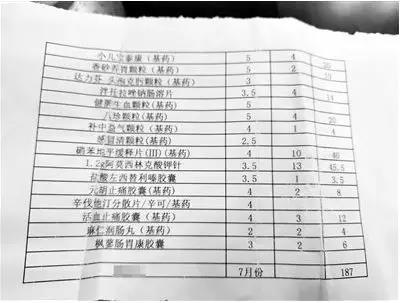 小儿宝泰康（基药） 5 4 20
香砂养胃颗粒（基药） 5 2 10
达力芬 头孢克肟颗粒（基药） 3
泮托拉唑钠肠溶片 3.5 4 14
健脾生血颗粒（基药） 5
八珍颗粒（基药） 5 4 20
补中益气颗粒（基药） 4 1 4
感冒清颗粒（基药） 2.5
硝苯地平缓释片(III)（基药） 4 10 40
1.2g阿莫西林克酸钾针 3.5 13 45.5
盐酸左西替利嗪胶囊 3.5 1 3.5
元胡止痛胶囊（基药） 4 2 8
辛伐他汀分散片/辛可/基药） 4
活血止痛胶囊（基药） 4 3 12
麻仁润肠丸（基药） 2 2 4
枫蓼肠胃康胶囊 3 2 6
7月份 187